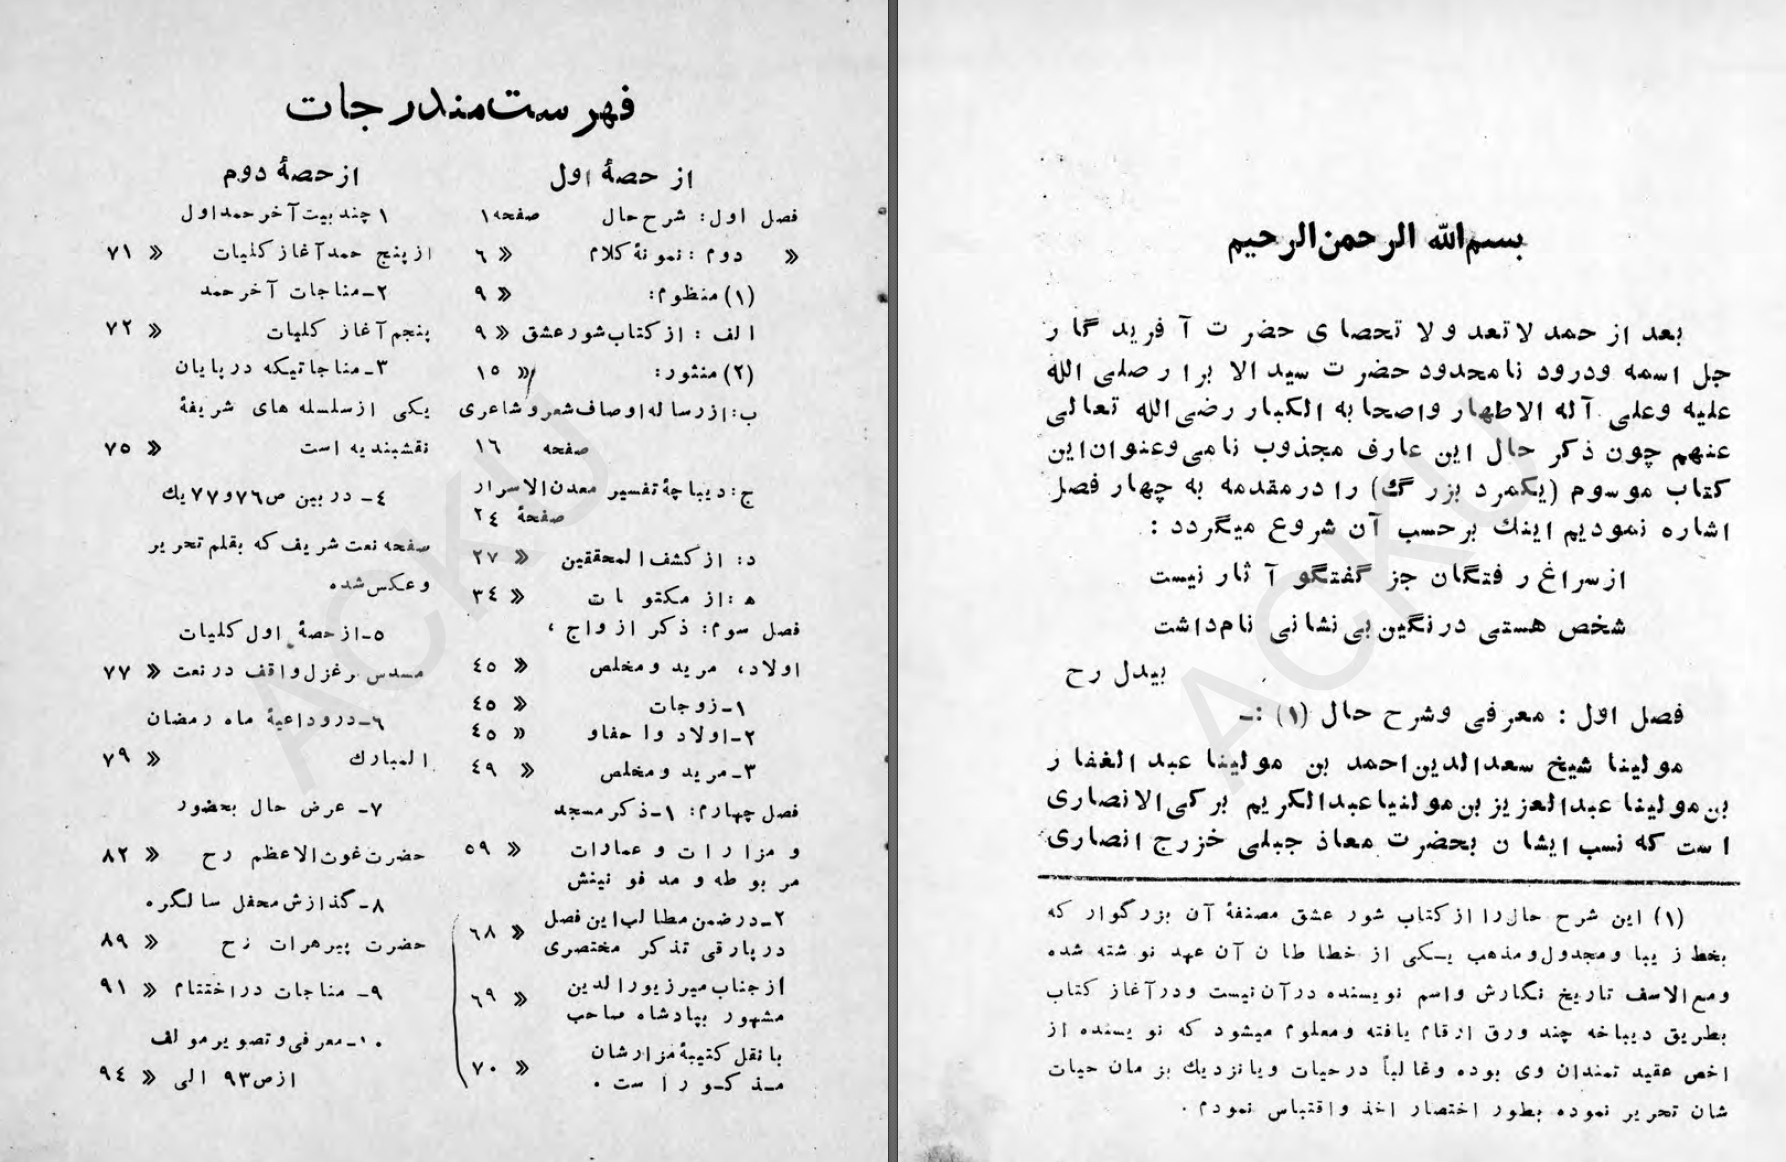 فهرست مندرجات
از حصهٔ اول
فصل اول: شرح حال صفحه ۱
« دوم: نمونهٔ کلام « ٦
(۱) منظوم: « ۹
الف: از کتاب شور عشق « ۹
(۲) منثور: « ۱٥
ب: از رساله اوصاف شعر و شاعری
صفحه ۱٦
ج: دیباچهٔ تفسیر معدن الاسرار
صفحهٔ ۲٤
د: از کشف المحققین « ۲۷
ه: از مکتوبات « ۳٤
فصل سوم: ذکر ازواج،
اولاد، مرید و مخلص « ٤٥
۱- زوجات « ٤٥
۲- اولاد و احفاو « ٤٥
۳- مرید و مخلص « ٤۹
فصل چهارم: ۱- ذکر مسجد
و مزارات و عمارات « ٥۹
مربوطه و مدفونینش
۲- در ضمن مطالب این فصل « ٦۸
در پارقی تذکر مختصری
از جناب میرزیورالدین « ٦۹
مشهور بپادشاه صاحب
با نقل کتیبهٔ مزارشان « ۷۰
مذکور است.
از حصهٔ دوم
۱ چند بیت آخر حمد اول
از پنج حمد آغاز کلیات « ۷۱
۲- مناجات آخر حمد
پنجم آغاز کلیات « ۷۲
۳- مناجاتیکه در پایان
یکی از سلسله های شریفهٔ
نقشبندیه است « ۷٥
٤- در بین ص ۷٦ و ۷۷ یك
صفحه نعت شریف که بقلم تحریر
و عکس شده
٥- از حصهٔ اول کلیات
مسدس بر غزل واقف در نعت « ۷۷
٦- در وداعیهٔ ماه رمضان
المبارك « ۷۹
۷- عرض حال بحضور
حضرت غوث الاعظم رح « ۸۲
۸- گذازش محفل سالگره
حضرت پیر هرات رح « ۸۹
۹- مناجات در اختتام « ۹۱
۱۰- معرفی و تصویر مولف
از ص ۹۳ الی « ۹٤
بسم الله الرحمن الرحیم
بعد از حمد لاتعد و لا تحصای حضرت آفریدگار
جل اسمه و درود نامحدود حضرت سید الابرار صلی الله
علیه وعلی آله الاطهار واصحابه الکبار رضی الله تعالی
عنهم چون ذکر حال این عارف مجذوب نامی وعنوان این
کتاب موسوم (یکمرد بزرگ) را در مقدمه به چهار فصل
اشاره نمودیم اینك بر حسب آن شروع میگردد :
از سراغ رفتگان جز گفتگو آثار نیست
شخص هستی در نگین بی نشانی نام داشت
بیدل رح
فصل اول : معرفی وشرح حال (۱) :-
مولینا شیخ سعدالدین احمد بن مولینا عبد الغفار
بن مولینا عبدالعزیز بن مولنیا عبدالکریم برکی الانصاری
است که نسب ایشان بحضرت معاذ جبلی خزرج انصاری
(۱) این شرح حال را از کتاب شور عشق مصنفهٔ آن بزرگوار که
بخط زیبا و مجدول و مذهب یکی از خطاطان آن عهد نوشته شده
ومع الاسف تاریخ نگارش واسم نویسنده در آن نیست و در آغاز کتاب
بطریق دیباخه چند ورق ارقام یافته و معلوم میشود که نویسنده از
اخص عقیدتمندان وی بوده وغالباً در حیات ویا نزدیك بزمان حیات
شان تحریر نموده بطور اختصار اخذ واقتباس نمودم.
ACKU
ACKU